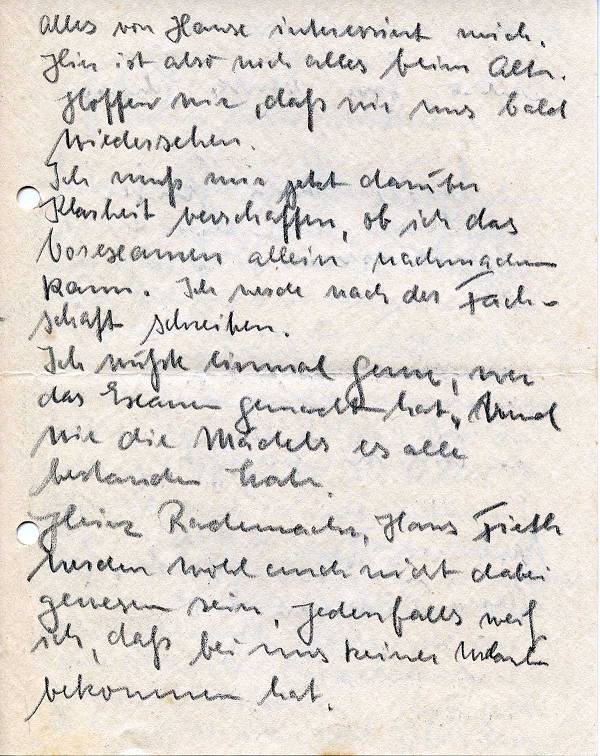 alles von Hause interessiert mich.
Hier ist also noch alles beim Alten.
Hoffen wir, daß wir uns bald
wiedersehen.
Ich muß mir jetzt darüber
Klarheit verschaffen, ob ich das
Vorexamen allein nachmachen
kann. Ich werde nach der Fach-
schaft schreiben.
Ich wüßte einmal gerne, wer
das Examen gemacht hat, und
wie die Mädels es alle
bestanden haben.
Heinz Rademacher, Hans Fieth
werden wohl auch nicht dabei
gewesen sein, jedenfalls weiß
ich, daß bei uns keiner Urlaub
bekommen hat.